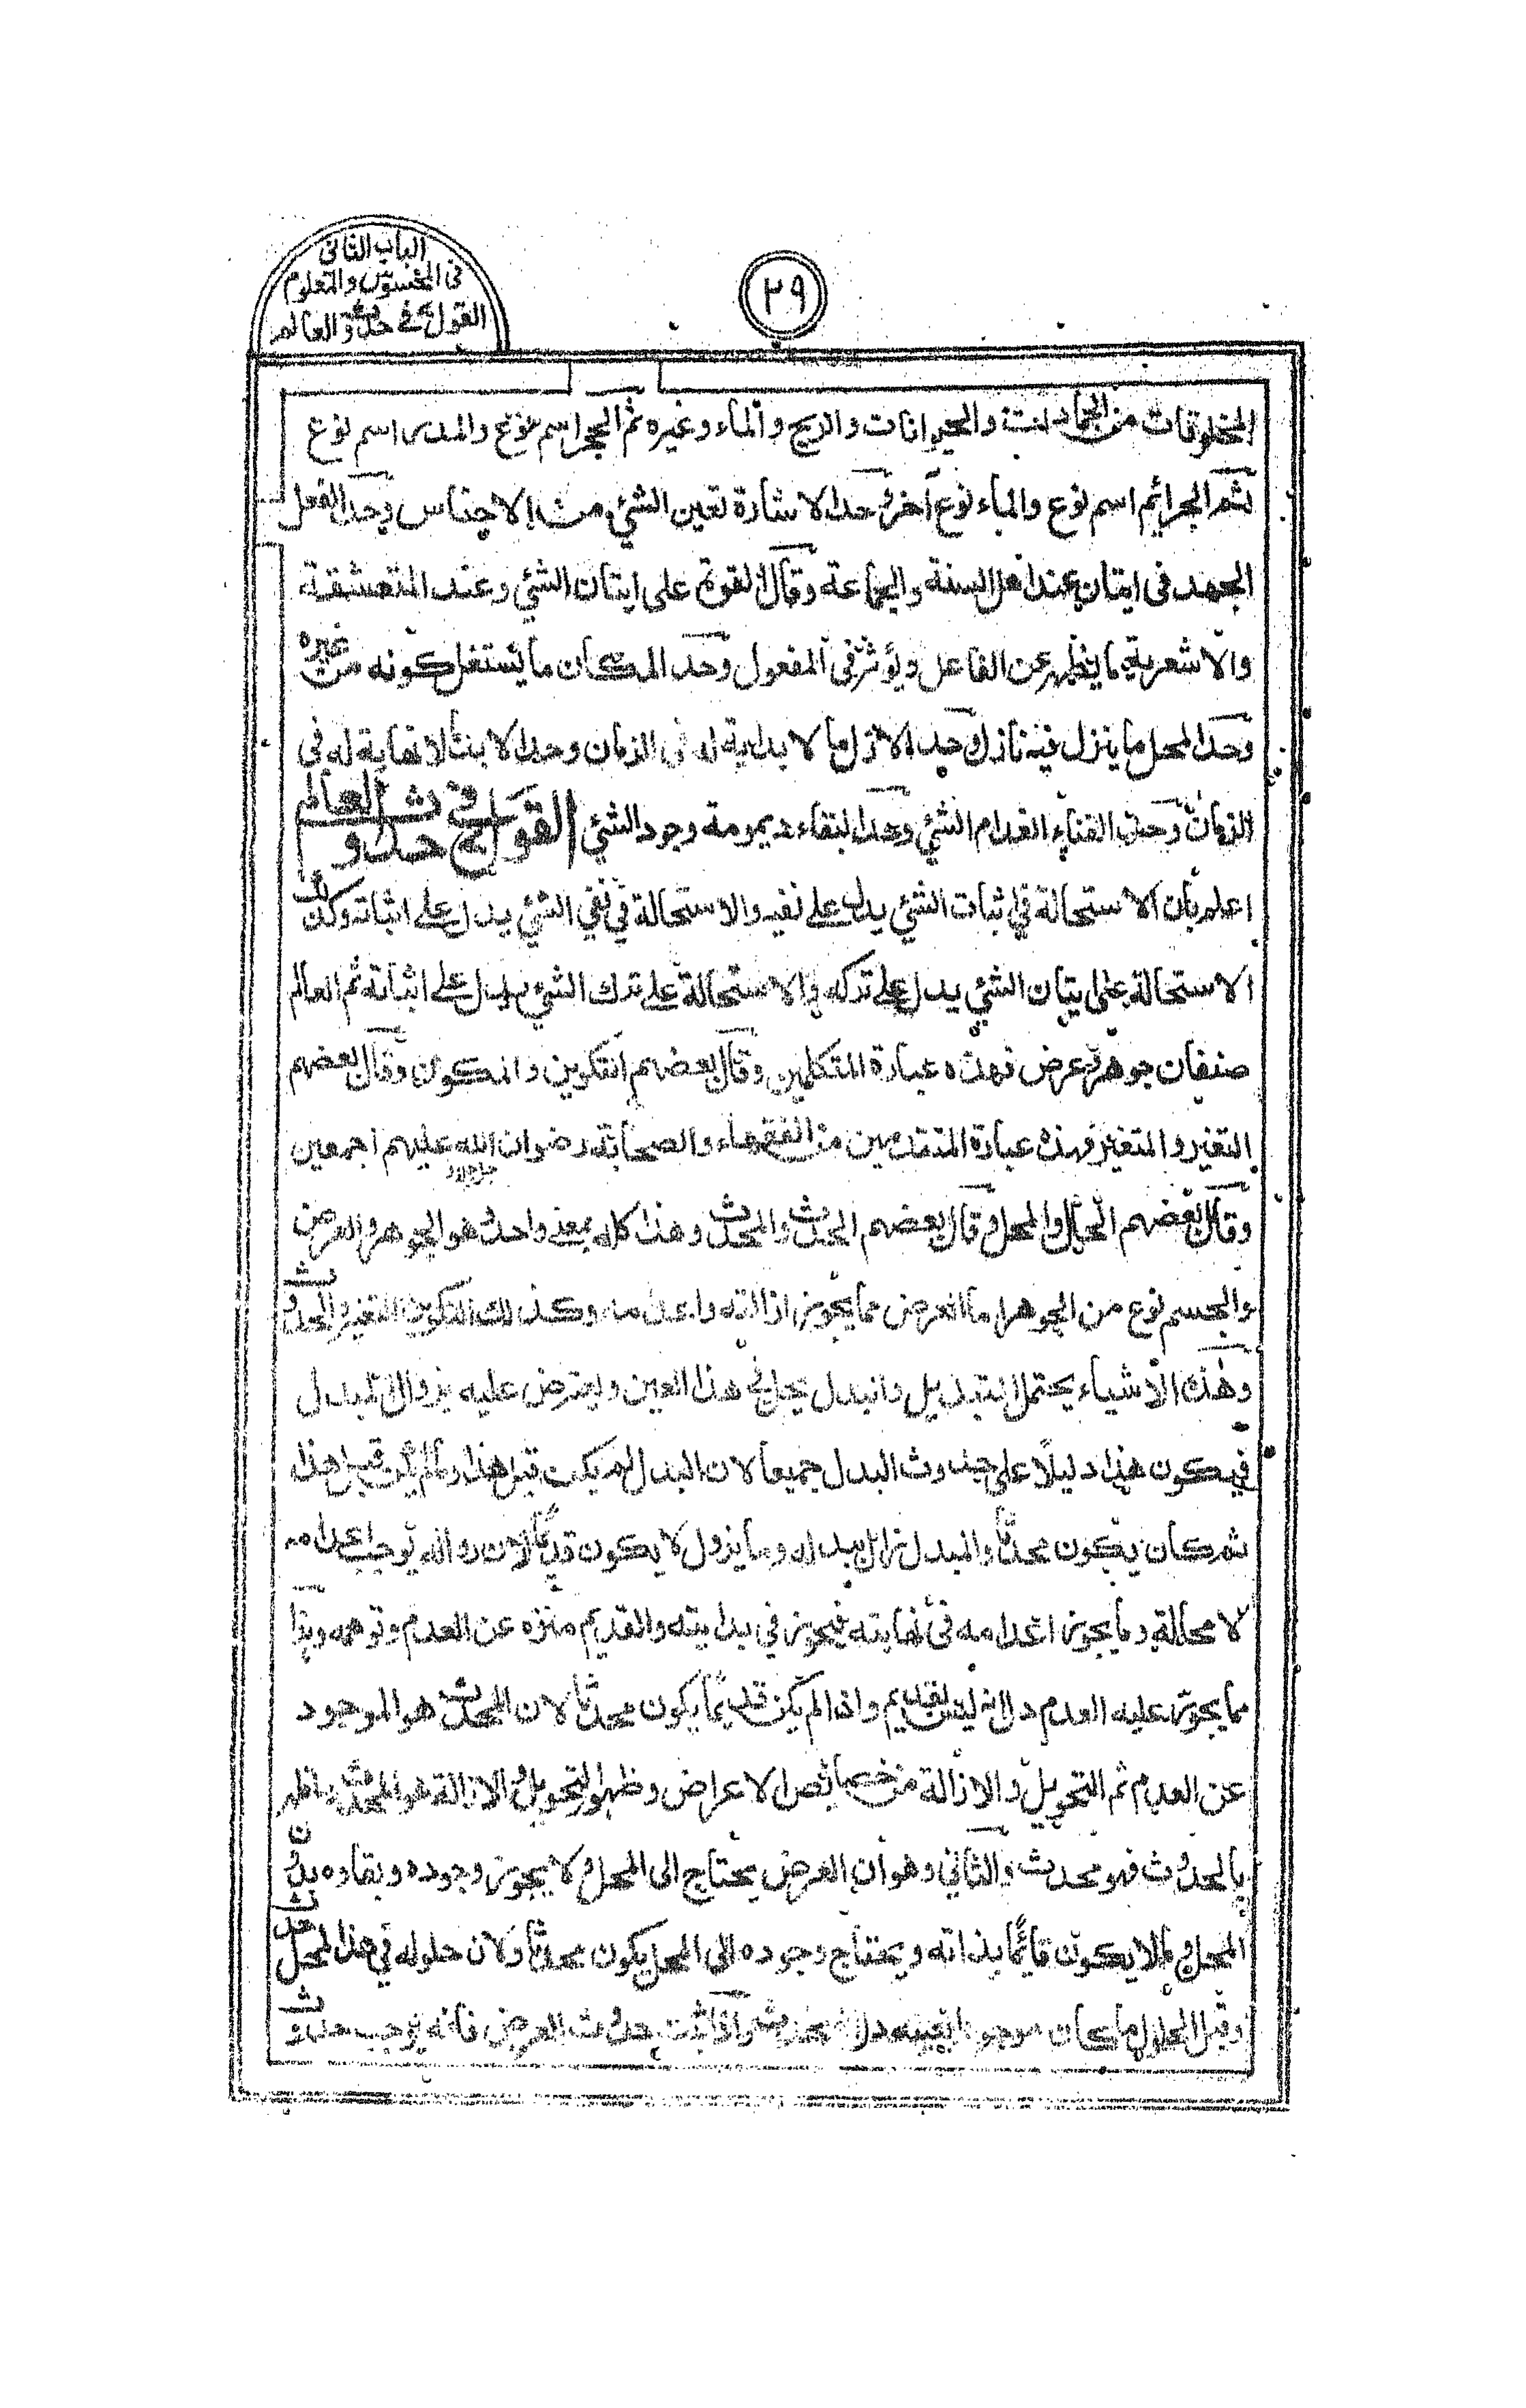 الباب الثانى
فى المحسوس والمعلوم
القول فى حدوث العالم
٢٩
المخلوقات من الجمادات والحيوانات والريح والماء وغيره ثم الحجر اسم نوع والمدر اسم نوع
ثم الجرائم اسم نوع والماء نوع آخر وحد الاشارة تعين الشئ من الاجناس وحد الفعل
الجهد فى ايتان عند اهل السنة والجماعة وقال القوة على ايتان الشئ وعند المتعشقة
والاشعرية ما يظهر عن الفاعل ويؤثر فى المفعول وحد المكان ما يستغل كونه من غيره
وحد المحل ما ينزل فيه نازل وحد الازل ما لا بداية له فى الزمان وحد الابد ما لا نهاية له فى
الزمان وحد الفناء انعدام الشئ وحد البقاء ديمومة وجود الشئ القول فى حدوث العالم
اعلم بأن الاستحالة فى اثبات الشئ يدل على نفيه والاستحالة فى نفي الشئ يدل على اثباته وكذلك
الاستحالة على ايتان الشئ يدل على تركه والاستحالة على ترك الشئ يدل على اثباته ثم العالم
صنفان جوهر وعرض فهذه عبارة المتكلمين وقال بعضهم التكوين والمكون وقال بعضهم
التغير والمتغير فهذه عبارة المتقدمين من الفقهاء والصحابة رضوان الله عليهم اجمعين
وقال بعضهم الحال والمحل وقال بعضهم الحدث والمحدث وهذا كله بمعنى واحد وهو الجوهر والعرض
والجسم نوع من الجوهر اما العرض مما يجوز ازالته واعدامه وكذلك التكوين والتغير والحدوث
وهذه الاشياء يحتمل التبديل والبدل يحل فى هذا العين ويعترض عليه بزوال المبدل
فيكون هذا دليلاً على حدوث البدل جميعا لان البدل لم يكن قبل هذا ولم يكن قبل هذا
ثم كان يكون محدثا والمبدل زائل ببدله وما يزول لا يكون قديما لان زواله يوجب اعدامه
لا محالة وما يجوز اعدامه فى نهايته فيجوز فى بدايته والقديم منزه عن العدم وتوهمه وهذا
مما يجوز عليه العدم دل انه ليس بقديم واذا لم يكن قديمًا يكون محدثا لان المحدث هو الموجود
عن العدم ثم التحويل والازالة من خصائص الاعراض وظهور التحويل والازالة هو الحدث وما ظهر
بالحدوث فهو محدث والثانى وهو ان العرض يحتاج الى المحل ولا يجوز وجوده وبقاؤه بدون
المحل وما لا يكون قائمًا بذاته ويحتاج وجوده الى المحل يكون محدثا ولان حلوله فى هذا المحل حدث
وقبل الحلول ما كان موجودا بعينه دل انه محدث واذا ثبت حدوث العرض فانه يوجب حدوث